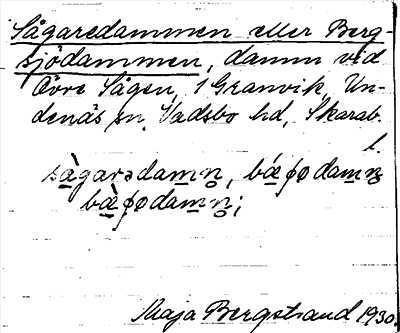 Sågaredammen eller Berg-
sjödammen, damm vid
Övre Sågen, 1 Granvik, Un-
denäs sn, Vadsbo hd, Skarab.
l.
sàgarədamn̥, bǽɸodamn̥
bæ̀ɸodamn̥;
Maja Bergstrand 1930.